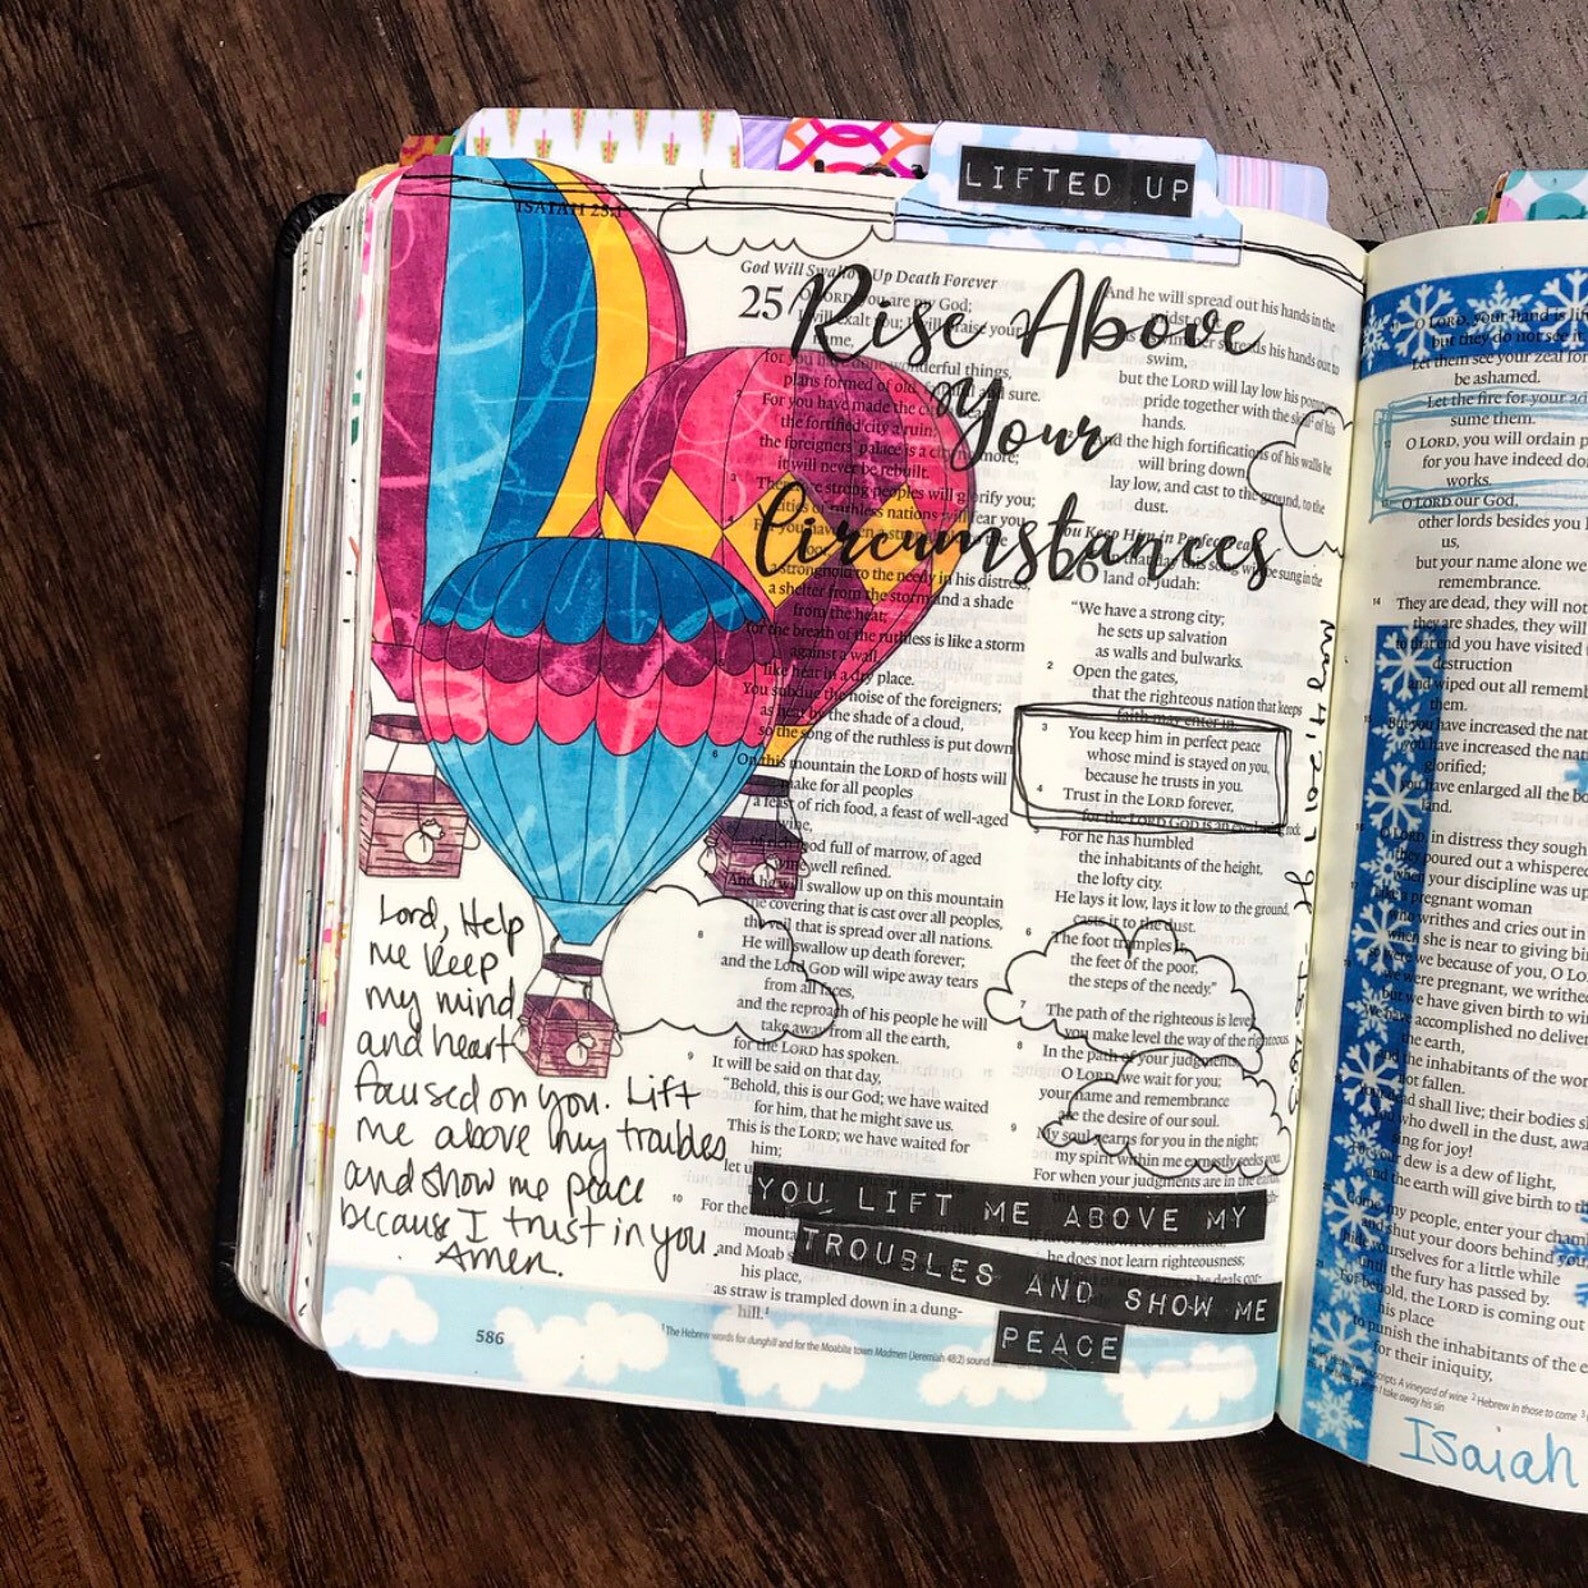 LIFTED UP
ISAIAH 25:1
Rise Above
Your
Circumstances
God Will Swallow Up Death Forever
25 O LORD, you are my God;
I will exalt you; I will praise your
name,
for you have done wonderful things,
plans formed of old, and sure.
2 For you have made the city
the fortified city a ruin;
the foreigners' palace is a city no more;
it will never be rebuilt.
3 Therefore strong peoples will glorify you;
cities of ruthless nations will fear you.
4 For you have been a stronghold to the
a stronghold to the needy in his distress,
a shelter from the storm and a shade
from the heat;
for the breath of the ruthless is like a storm
against a wall,
5 like heat in a dry place.
You subdue the noise of the foreigners;
as heat by the shade of a cloud,
so the song of the ruthless is put down.
6 On this mountain the LORD of hosts will
make for all peoples
a feast of rich food, a feast of well-aged
wine,
of rich food full of marrow, of aged
wine well refined.
And he will swallow up on this mountain
the covering that is cast over all peoples,
the veil that is spread over all nations.
8 He will swallow up death forever;
and the Lord GOD will wipe away tears
from all faces,
and the reproach of his people he will
take away from all the earth,
for the LORD has spoken.
9 It will be said on that day,
"Behold, this is our God; we have waited
for him, that he might save us.
This is the LORD; we have waited for
him;
let u
10 For the
mounta
and Moab s
his place,
as straw is trampled down in a dung-
hill.1
And he will spread out his hands in the
midst of
as a swimmer spreads his hands out to
swim,
but the LORD will lay low his pompous
pride together with the skill of his
hands.
And the high fortifications of his walls he
will bring down,
lay low, and cast to the ground, to the
dust.
You Keep Him in Perfect Peace
26 In that day this song will be sung in the
land of Judah:
"We have a strong city;
he sets up salvation
as walls and bulwarks.
2 Open the gates,
that the righteous nation that keeps
faith may enter in.
3 You keep him in perfect peace
whose mind is stayed on you,
because he trusts in you.
4 Trust in the LORD forever,
for the LORD GOD is an everlasting rock.
5 For he has humbled
the inhabitants of the height,
the lofty city.
He lays it low, lays it low to the ground,
casts it to the dust.
6 The foot tramples it,
the feet of the poor,
the steps of the needy."
7 The path of the righteous is level;
you make level the way of the righteous
8 In the path of your judgments,
O LORD, we wait for you;
your name and remembrance
are the desire of our soul.
9 My soul yearns for you in the night;
my spirit within me earnestly seeks you.
For when your judgments are in the earth,
he does not learn righteousness;
Lord, Help
me keep
my mind
and heart
focused on you. Lift
me above my troubles
and show me peace
because I trust in you.
Amen.
YOU LIFT ME ABOVE MY
TROUBLES AND SHOW ME
PEACE
586
1 The Hebrew words for dunghill and for the Moabite town Madmen (Jeremiah 48:2) sound
O LORD, your hand is lif
but they do not see it
Let them see your zeal for
be ashamed.
Let the fire for your ad
sume them.
O LORD, you will ordain p
for you have indeed do
works.
O LORD our God,
other lords besides you
us,
but your name alone we
remembrance.
14 They are dead, they will not
they are shades, they will
to that end you have visited
destruction
and wiped out all rememb
them.
But you have increased the nat
you have increased the nat
glorified;
you have enlarged all the bo
land.
O LORD, in distress they sough
they poured out a whispered
when your discipline was up
Like a pregnant woman
who writhes and cries out in
when she is near to giving bi
so were we because of you, O LO
we were pregnant, we writhe
but we have given birth to win
We have accomplished no deliver
the earth,
and the inhabitants of the wor
not fallen.
Your dead shall live; their bodies s
You who dwell in the dust, awa
sing for joy!
For your dew is a dew of light,
and the earth will give birth to th
Come, my people, enter your cham
and shut your doors behind you
hide yourselves for a little while
until the fury has passed by.
For behold, the LORD is coming out
his place
to punish the inhabitants of the e
for their iniquity,
Isaiah